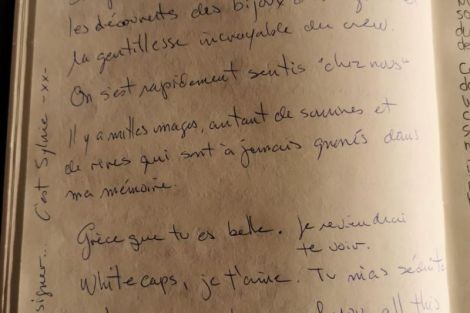 les découvertes des bijoux
la gentillesse incroyable du crew.
On s'est rapidement sentis "chez nous"
Il y a milles images, autant de sourires et
de rires qui sont à jamais gravés dans
ma mémoire.
Grèce que tu es belle. Je reviendrai
te voir.
White caps, je t'aime. Tu m'as séduite
all this
signer... C'est Sylvie -xx-